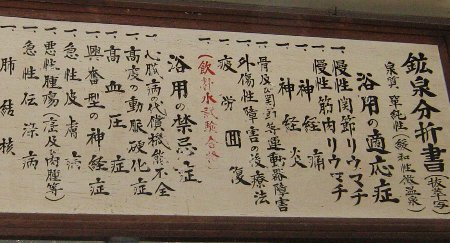 鉱泉分析書(抜萃写)
泉質 単純性(緩和性微温泉)
浴用の適応症
一、慢性関節リウマチ
一、慢性筋肉リウマチ
一、神経痛
一、神経炎
一、骨及関節等運動器障害
一、外傷性障害の後療法
一、疲労回復
(飲料水試験合格)
浴用の禁忌症
一、心臓病代償機能不全
一、高度の動脈硬化症
一、高血圧症
一、興奮型の神経症
一、急性皮膚病
一、悪性腫瘍(症及肉腫等)
一、急性伝染病
一、肺結核